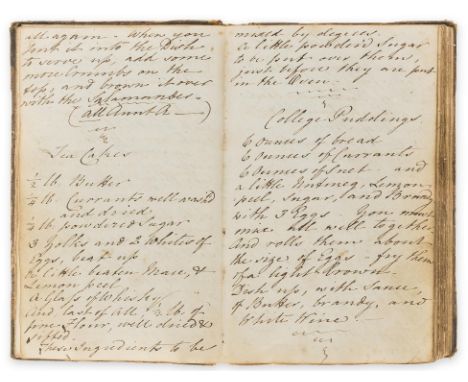 all again. When you
put it into the Dish,
to serve up, add some
more Crumbs on the
top, and brown it over
with the Salamander.
(All Aunt A—)
Tea Cakes
½ lb. Butter
Currants well wash'd
and dried,
¼ lb. powdered Sugar
3 Yolks and 2 Whites of
Eggs, beat up
A little beaten Mace, &
Lemon peel
A Glass of Whisky
And last of All, lb. of
fine Flour, well dried &
sifted.
These Ingredients to be
mixed by degrees.
a little powdered Sugar
to be put over them,
just before they are put
in the Oven.
College Puddings
6 Ounces of bread
6 Ounces of Currants
6 Ounces of Suet and
a little Nutmeg, Lemon
peel, Sugar, and Brandy
with 3 Eggs. You must
mix all well together
and roll them about
the size of Eggs. fry them
of a light brown.
Dish up, with Sauce,
of Butter, brandy, and
White Wine.